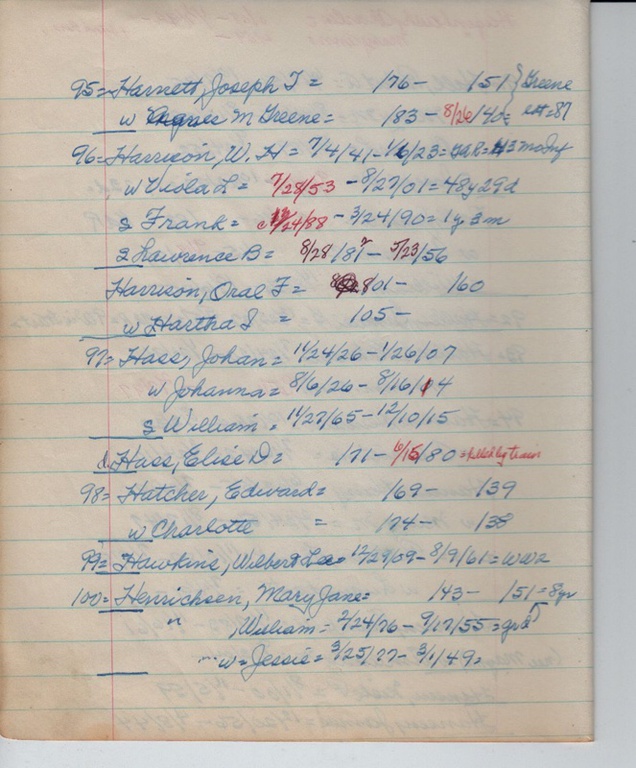 95= Harnett, Joseph T = /76 - /51 } Greene
w Agnes M Greene = /83 - 8/26/40 = est = 87
96= Harrison, W. H = 7/4/41 - 1/6/23 = GAR =
w Viola L = 7/28/53 - 8/27/01 = 48y 29d
s Frank = 12/24/88 - 3/24/90 = 1y 3m
s Lawrence B = 8/28/87 - 5/23/56
Harrison, Oral F = /801 - /60
w Hartha I = /05 -
97= Hass, Johan = 11/24/26 - 1/26/07
w Johanna = 8/6/26 - 8/16/14
s William = 11/27/65 - 12/10/15
d. Hass, Elise D = /71 - 6/15/80 = killed by train
98= Hatcher, Edward = /69 - /39
w Charlotte = /74 - /38
99= Hawkins, Wilbert Lee = 12/29/09 - 8/9/61 = WW2
100= Henrichsen, Mary Jane = /43 - /51 = 8yr
" , William = 2/24/76 - 9/17/55 = gr d
" w = Jessie = 3/25/77 - 3/1/49 =